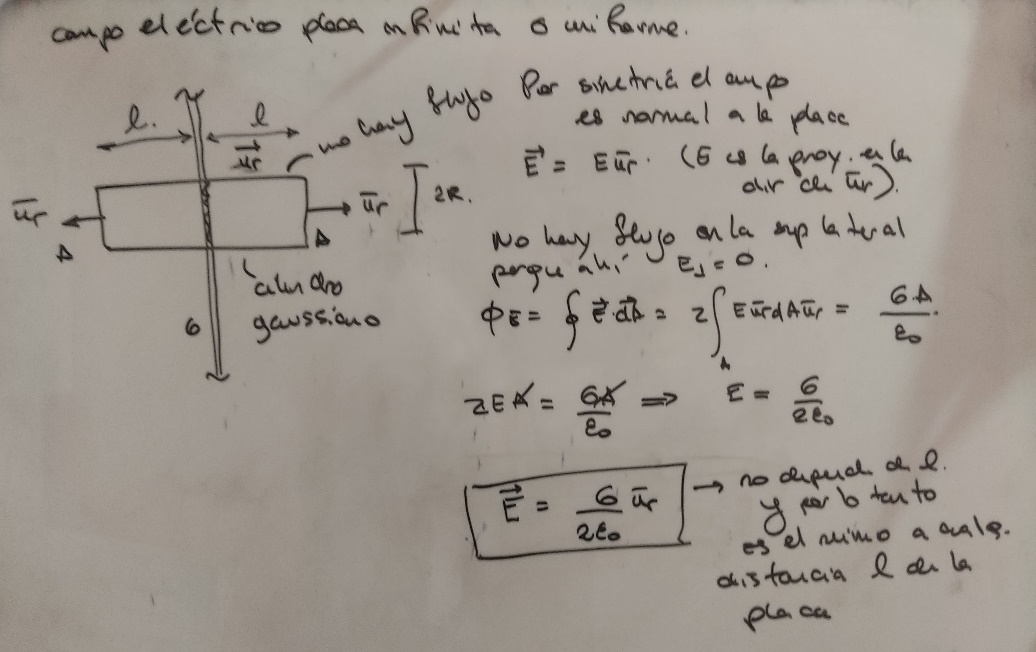 campo eléctrico placa infinita o uniforme.
l. l
ur
no hay flujo
ur ur 2R.
A A
cilindro
gaussiano
σ
Por simetría el campo
es normal a la placa
E = E ur. (E es la proy. en la
dir de ur).
No hay flujo en la sup lateral
porque ahí E⊥ = 0.
ΦE = ∮ E·dA = 2∫A E ur dA ur = σ·A/ε0.
2EA = σA/ε0 ⇒ E = σ/2ε0
E = σ/2ε0 ur → no depende de l.
y por lo tanto
es el mismo a cualq.
distancia l de la
placa